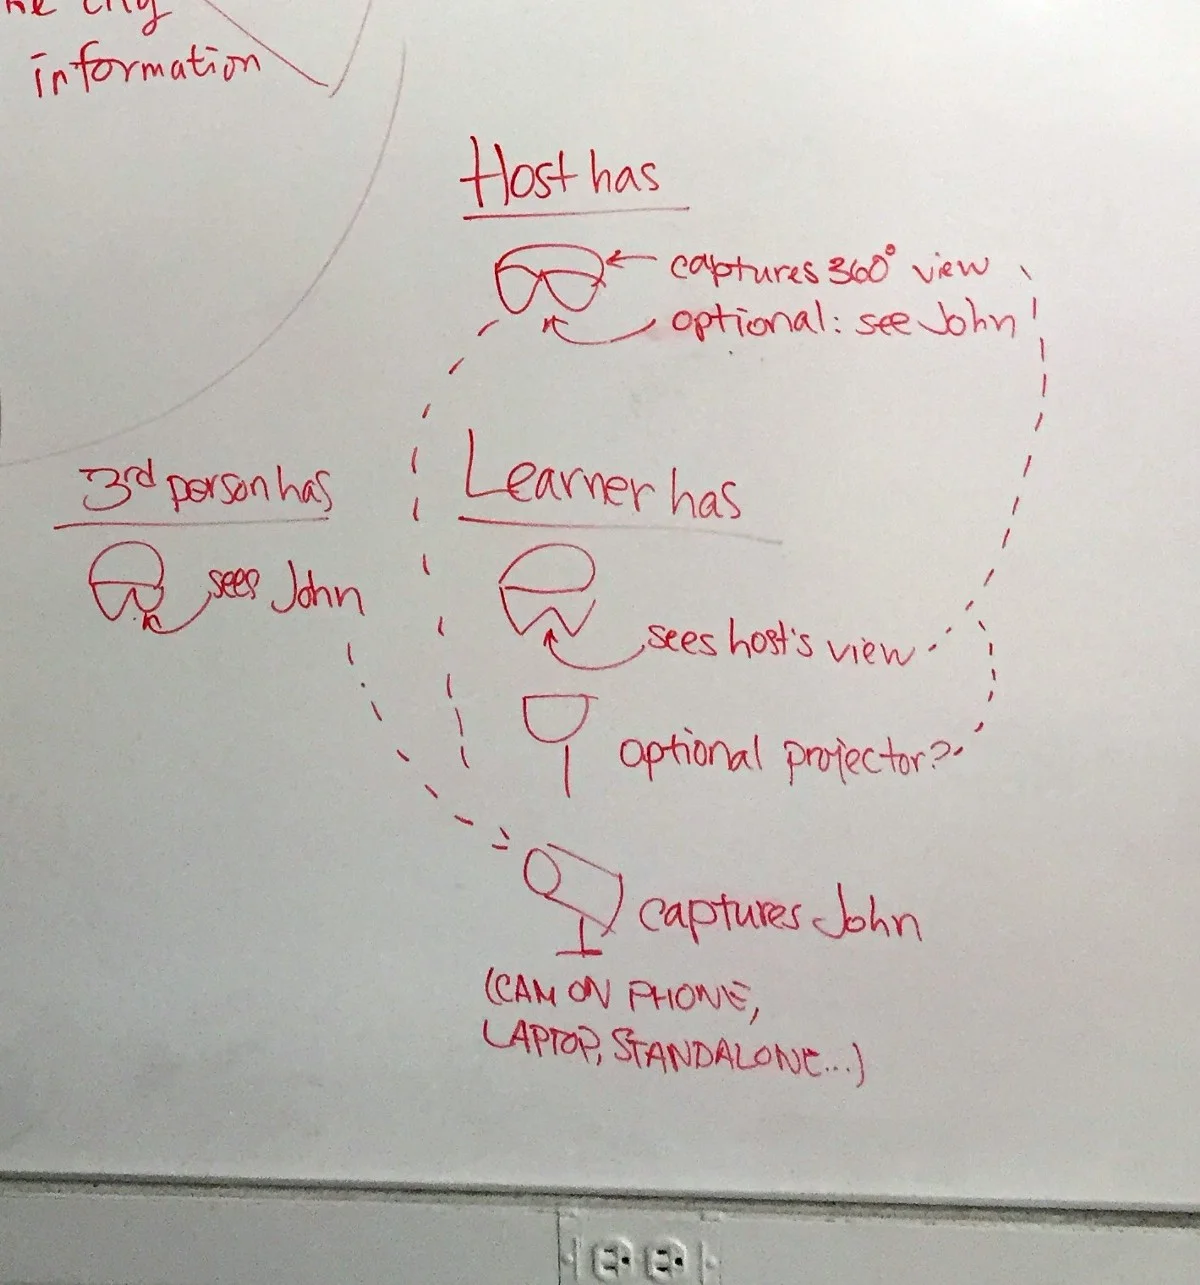 he city
information
Host has
captures 360° view
optional: see John
3rd person has
sees John
Learner has
sees host's view
optional projector?
captures John
(CAM ON PHONE,
LAPTOP, STANDALONE...)